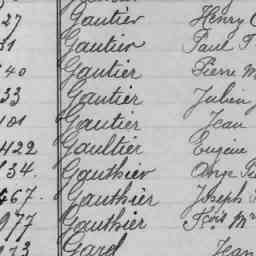 27 Gautier Henry
31 Gautier Paul
40 Gautier Pierre M
33 Gautier Julien
101 Gautier Jean
422 Gaultier Eugène
34. Gauthier Ange
467. Gauthier Joseph
977 Gauthier Frçois M
973 Gard Jean